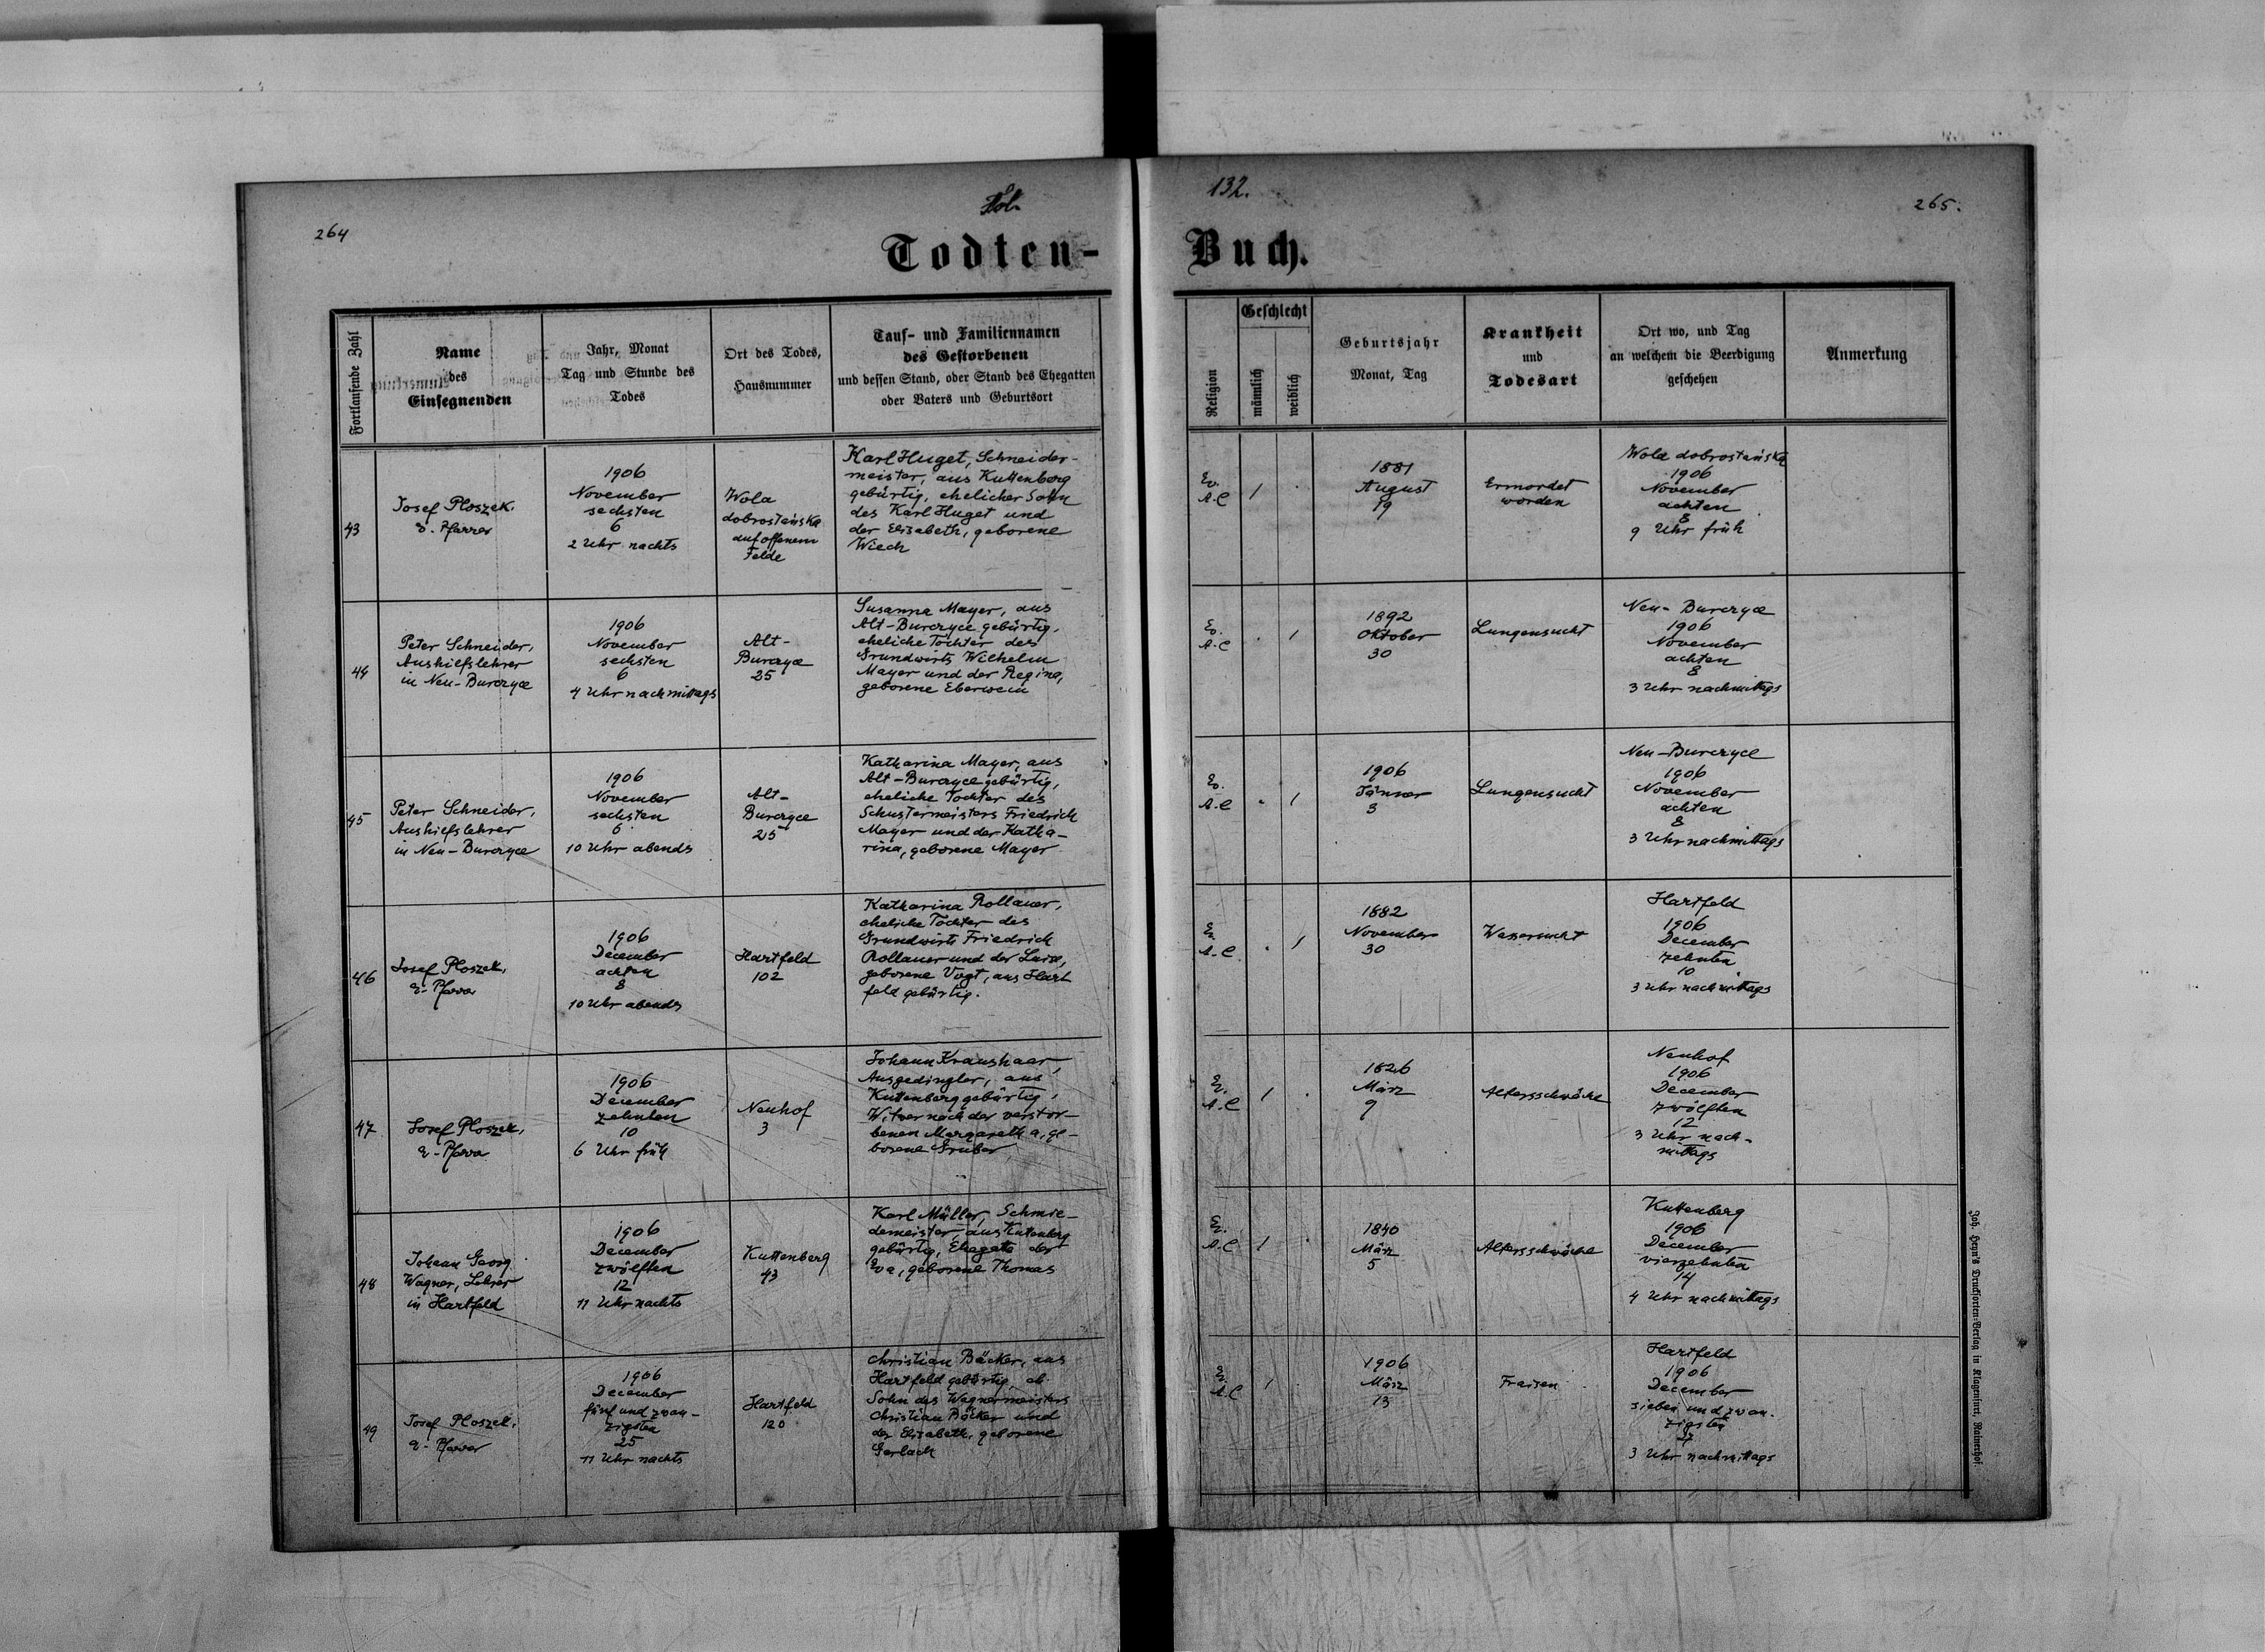 264
Fol.
132.
265.
Todten-
Buch.
Fortlaufende Zahl
Name
des
Einsegnenden
Jahr, Monat
Tag und Stunde des
Todes
Ort des Todes,
Hausnummer
Tauf- und Familiennamen
des Gestorbenen
und dessen Stand, oder Stand des Ehegatten
oder Vaters und Geburtsort
Religion
Geschlecht
männlich
weiblich
Geburtsjahr
Monat, Tag
Krankheit
und
Todesart
Ort wo, und Tag
an welchem die Beerdigung
geschehen
Anmerkung
43
Josef Ploszek.
e. Pfarrer
1906
November
sechsten
6
2 Uhr nachts
Wola
dobrostańska
auf offenem
Felde
Karl Huget, Schneider-
meister, aus Kuttenberg
gebürtig, ehelicher Sohn
des Karl Huget und
der Elisabeth, geborene
Wiech
Ev.
A.C
1881
August
19
Ermordet
worden
Wola dobrostańska
1906
November
achten
8
9 Uhr früh
44
Peter Schneider,
Aushilfslehrer
in Neu-Burczyce
1906
November
sechsten
6
4 Uhr nachmittags
Alt-
Burczyce
25
Susanna Mayer, aus
Alt-Burczyce gebürtig,
eheliche Tochter des
Grundwirts Wilhelm
Mayer und der Regina,
geborene Eberwein
Ev.
A.C
1892
Oktober
30
Lungensucht
Neu-Burczyce
1906
November
achten
8
3 Uhr nachmittags
45
Peter Schneider,
Aushilfslehrer
in Neu-Burczyce
1906
November
sechsten
6
10 Uhr abends
Alt-
Burczyce
25
Katharina Mayer, aus
Alt-Burczyce gebürtig,
eheliche Tochter des
Schustermeisters Friedrich
Mayer und der Katha-
rina, geborene Mayer
Ev.
A.C
1906
Jänner
3
Lungensucht
Neu-Burczyce
1906
November
achten
8
3 Uhr nachmittags
46
Josef Ploszek,
e. Pfarrer
1906
December
achten
8
10 Uhr abends
Hartfeld
102
Katharina Rollauer,
eheliche Tochter des
Grundwirts Friedrich
Rollauer und der Luise,
geborene Vogt, aus Hart
feld gebürtig.
Ev.
A.C.
1882
November
30
Wassersucht
Hartfeld
1906
December
zehnten
10
3 Uhr nachmittags
47
Josef Ploszek,
e. Pfarrer
1906
December
zehnten
10
6 Uhr früh
Neuhof
3
Johann Kraushaar,
Ausgedingler, aus
Kuttenberg gebürtig,
Witwer nach der verstor-
benen Margaretha, ge-
borene Gruber
Ev.
A.C
1826
März
9
Altersschwäche
Neuhof
1906
December
zwölften
12
3 Uhr nach-
mittags
48
Johann Georg
Wagner, Lehrer
in Hartfeld
1906
December
zwölften
12
11 Uhr nachts
Kuttenberg
43
Karl Müller, Schmie-
demeister, aus Kuttenberg
gebürtig, Ehegatte der
Eva, geborene Thomas
Ev.
A.C
1840
März
5
Altersschwäche
Kuttenberg
1906
December
vierzehnten
14
4 Uhr nachmittags
49
Josef Ploszek.
e. Pfarrer
1906
December
fünf und zwan-
zigsten
25
11 Uhr nachts
Hartfeld
120
Christian Bäcker, aus
Hartfeld gebürtig, eh.
Sohn des Wagnermeisters
Christian Bäcker und
der Elisabeth, geborene
Gerlach
Ev.
A.C
1906
März
13
Fraisen
Hartfeld
1906
December
sieben und zwan-
zigsten
27
3 Uhr nachmittags
Joh. Heyn's Drucksorten-Verlag in Klagenfurt, Rainerhof.